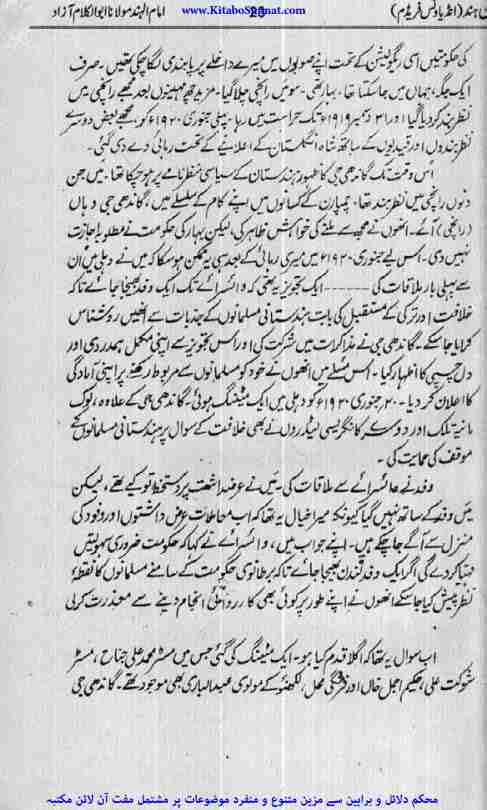 ہند (انڈیا ونس فریڈم)
23
www.KitaboSunnat.com
امام الہند مولانا ابوالکلام آزاد
کی حکومتیں اسی ریگولیشن کے تحت اپنے صوبوں میں میرے داخلے پر پابندی لگا چکی تھیں۔ صرف
ایک جگہ، جہاں میں جا سکتا تھا، بہار تھی۔ سو میں رانچی چلا گیا۔ مزید چھ مہینوں بعد مجھے رانچی میں
نظر بند کر دیا گیا اور ۳۱ دسمبر ۱۹۱۹ء تک حراست میں رہا۔ پہلی جنوری ۱۹۲۰ء کو، مجھے بعض دوسرے
نظر بندوں اور قیدیوں کے ساتھ شاہ انگلستان کے اعلانیے کے تحت رہائی دے دی گئی۔
اس وقت تک گاندھی جی کا ظہور ہندستان کے سیاسی منظرنامے پر ہو چکا تھا۔ میں جن
دنوں رانچی میں نظر بند تھا، چمپارن کے کسانوں میں اپنے کام کے سلسلے میں، گاندھی جی وہاں
(رانچی) آئے۔ انھوں نے مجھ سے ملنے کی خواہش ظاہر کی، لیکن بہار کی حکومت نے مطلوبہ اجازت
نہیں دی۔ اس لیے جنوری ۱۹۲۰ء میں میری رہائی کے بعد ہی یہ ممکن ہو سکا کہ میں نے دہلی میں ان
سے پہلی بار ملاقات کی ------ ایک تجویز یہ تھی کہ وائسرائے تک ایک وفد بھیجا جائے تاکہ
خلافت اور ترکی کے مستقبل کی بابت ہندستانی مسلمانوں کے جذبات سے انھیں روشناس
کرایا جا سکے۔ گاندھی جی نے مذاکرات میں شرکت کی اور اس تجویز سے اپنی مکمل ہمدردی اور
دل چسپی کا اظہار کیا۔ اس مسئلے میں انھوں نے خود کو مسلمانوں سے مربوط رکھنے پر اپنی آمادگی
کا اعلان کر دیا۔ ۲۰ جنوری ۱۹۲۰ء کو دہلی میں ایک میٹنگ ہوئی۔ گاندھی جی کے علاوہ، لوک
مانیہ تلک اور دوسرے کانگریسی لیڈروں نے بھی خلافت کے سوال پر ہندستانی مسلمانوں کے
موقف کی حمایت کی۔
وفد نے وائسرائے سے ملاقات کی۔ میں نے عرضداشت پر دستخط تو کیے تھے، لیکن
میں وفد کے ساتھ نہیں گیا کیونکہ میرا خیال یہ تھا کہ اب معاملات عرض داشتوں اور وفود کی
منزل سے آگے جا چکے ہیں۔ اپنے جواب میں، وائسرائے نے کہا کہ حکومت ضروری سہولتیں
مہیا کر دے گی اگر ایک وفد لندن بھیجا جائے تاکہ برطانوی حکومت کے سامنے مسلمانوں کا نقطۂ
نظر پیش کیا جا سکے انھوں نے اپنے طور پر کوئی بھی کارروائی انجام دینے سے معذرت کر لی
اب سوال یہ تھا کہ اگلا قدم کیا ہو۔ ایک میٹنگ کی گئی جس میں مسٹر محمد علی جناح، مسٹر
شوکت علی، حکیم اجمل خاں اور فرنگی محل، لکھنؤ کے مولوی عبدالباری بھی موجود تھے۔ گاندھی جی
محکم دلائل و براہین سے مزین متنوع و منفرد موضوعات پر مشتمل مفت آن لائن مکتبہ